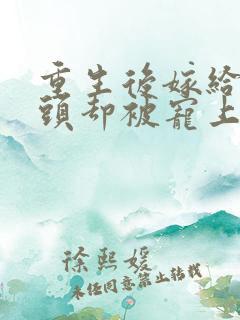 重生後嫁給
頭却被寵上
徐熙媛
未经同意禁止转载